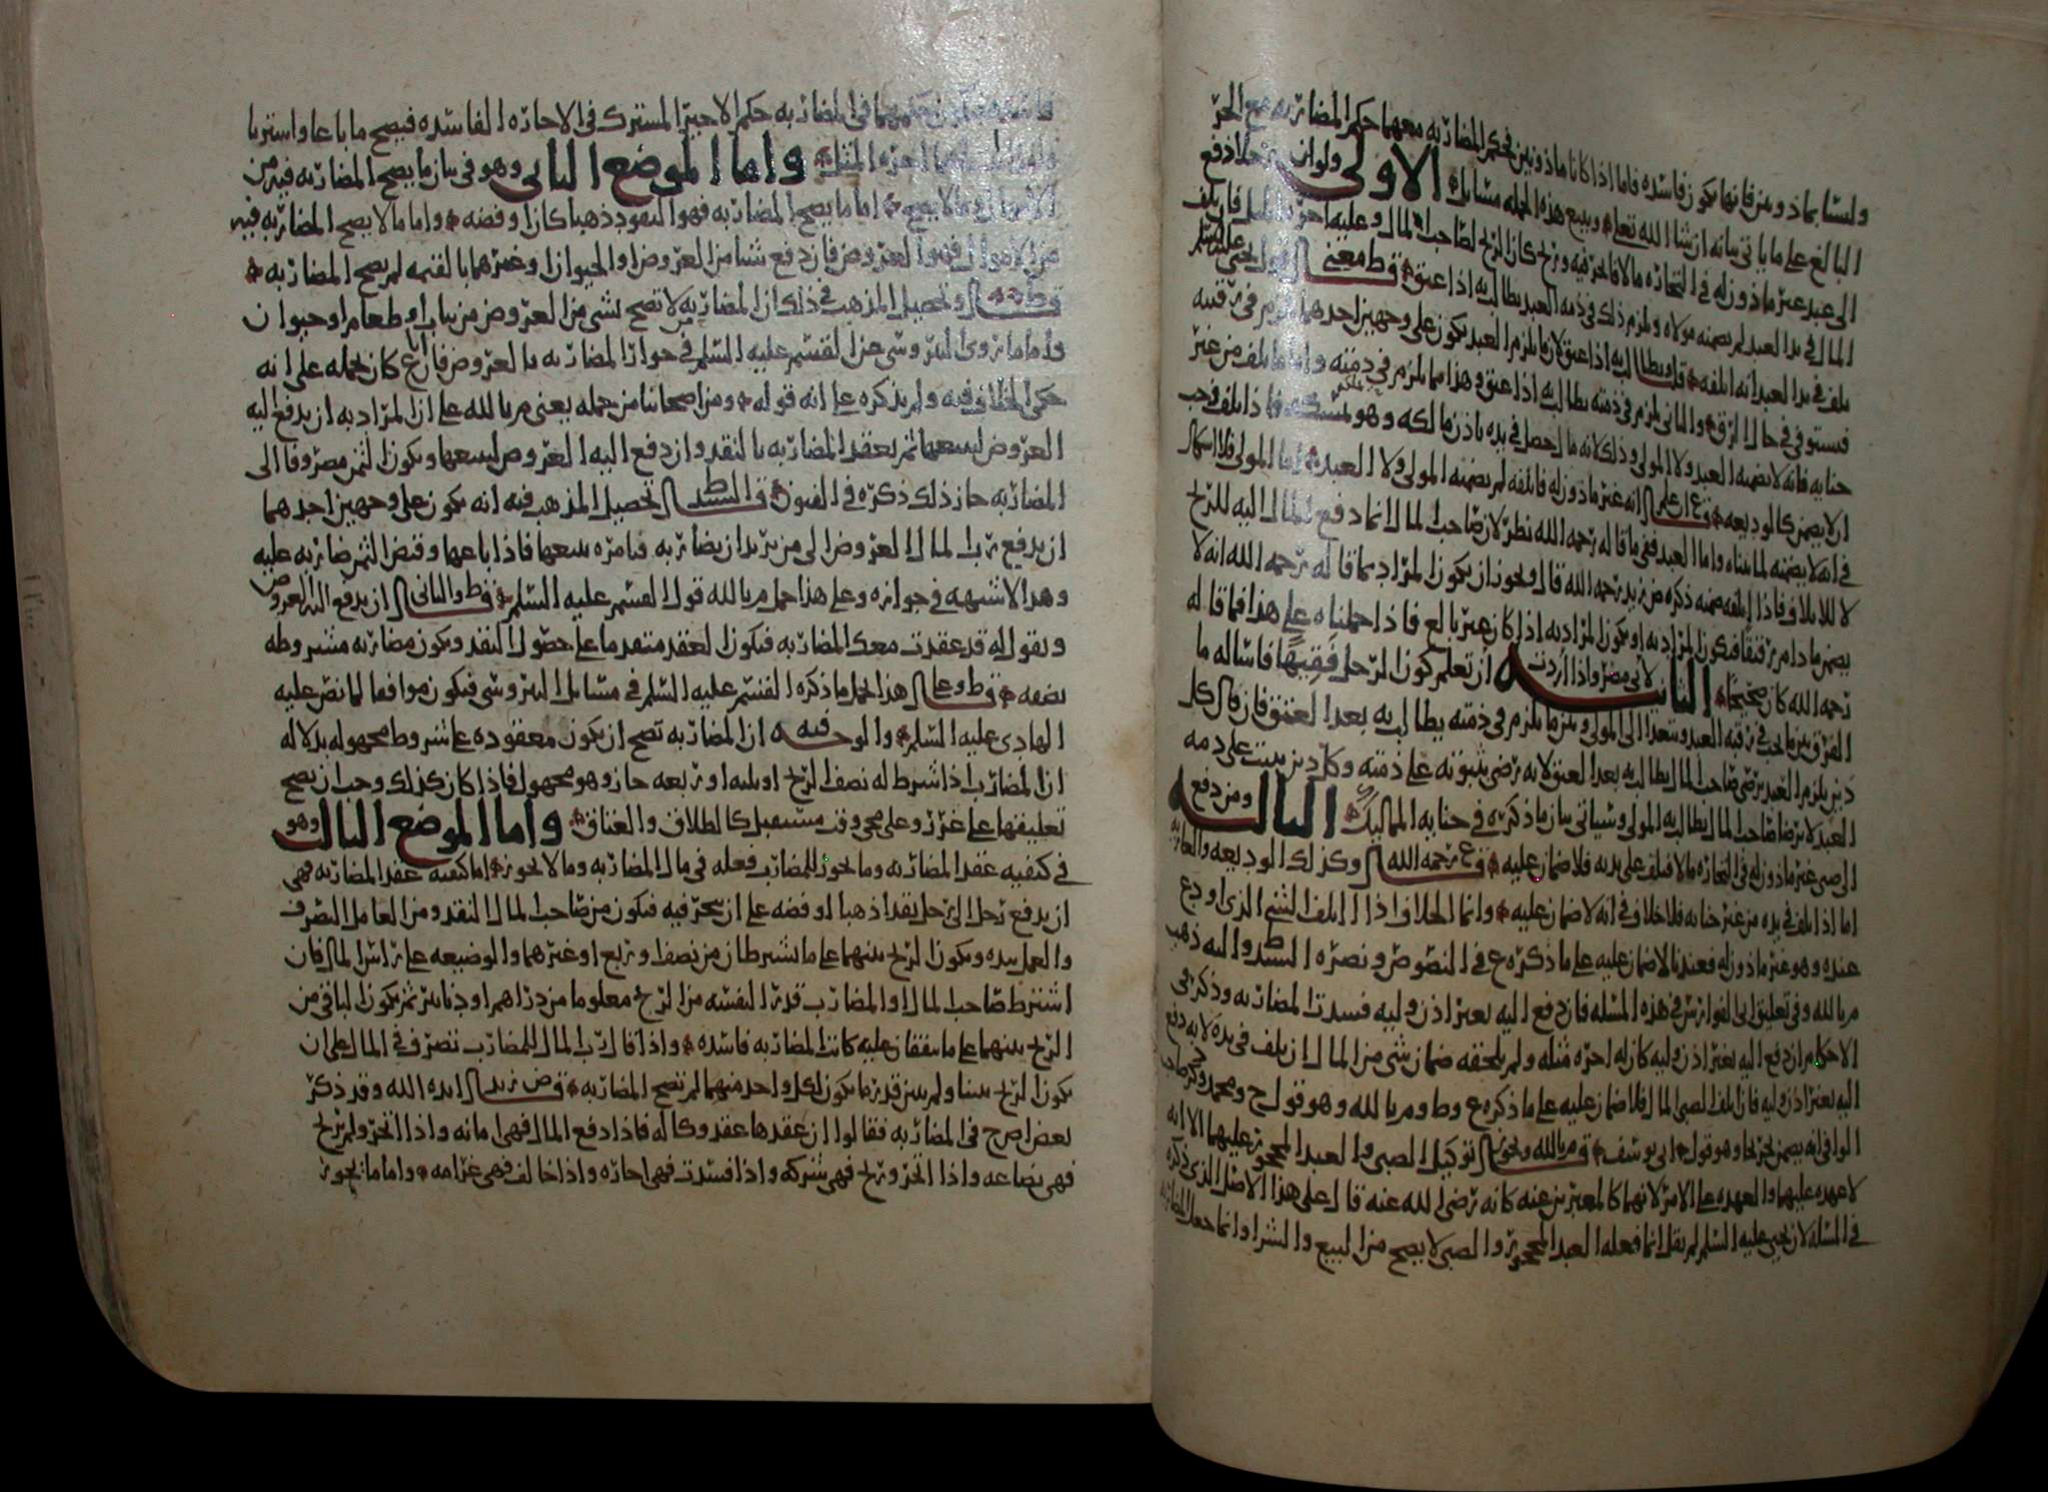 وليسا بماذونين فانها تكون فاسده فاما اذا كانا ماذونين فحكم المضاربه معهما حكم المضاربه مع الحر
البالغ على ما ياتي بيانه ان شا الله تعالى وتتبع هذه الجمله مسائل الاولى ولو ان رجلا دفع
الى عبد غير ماذون له في التجاره مالا فاتجر فيه وربح كان الربح لصاحب المال وعليه اجره المثل فان تلف
المال في يد العبد لم يضمنه مولاه ويلزم ذلك في ذمه العبد يطالب به اذا عتق قط معنى قول يحيى عليه السلم
تلف في يد العبد انه اتلفه ويطالب به اذا عتق لان ما يلزم العبد يكون على وجهين احدهما يلزم في رقبته
فيستوفى في حال الرق والثاني يلزم في ذمته يطالب به اذا عتق وهذا مما يلزم في ذمته واما ما تلف من غير
جنايه فانه لا يضمنه العبد ولا المولى وذلك لانه ما احصل في يده باذن مالكه وهو فاذا تلف وجب
ان لا يضمن كالوديعه انه غير ماذون له فاتلفه لم يضمنه المولى ولا العبد اما المولى فلا اشكال
في انه لا يضمنه لما بيناه واما العبد ففي ما قاله رحمه الله نظر لان صاحب المال انما دفع المال اليه للربح
لا للاتلاف فاذا اتلفه ضمنه ذكره ض زيد رحمه الله قال ويجوز ان يكون المراد بما قاله رحمه الله انه لا
يضمن ما دام رقيقا فيكون المراد به او يكون المراد به اذا كان غير بالغ فاذا حملناه على هذا فما قاله
رحمه الله كان صحيحا الثانيه لابي مضر واذا اردت ان تعلم كون الرجل فقيها فاساله ما
الفرق بين ما يجب في رقبه العبد ويتعدا الى المولى وبين ما يلزم في ذمته يطالب به بعد العتق فان قال كل
دين يلزم العبد برضى صاحب المال يطالب به بعد العتق لانه رضي بثبوته على ذمته وكل دين يثبت على ذمه
العبد لا برضا صاحب المال يطالب به المولى وسياتي بيان ما ذكره في جنايه المماليك الثالثه ومن دفع
الى صبي غير ماذون له في التجاره مالا فتلف على يديه فلا ضمان عليه قع رحمه الله وكذلك الوديعه والعاريه
اما اذا تلف في يده من غير جنايه فلا خلاف في انه لا ضمان عليه وانما الخلاف اذا اتلف الشي الذي اودع
عنده وهو غير ماذون له فعندنا لا ضمان عليه على ما ذكره ع في النصوص ونصره السيد ط واليه ذهب
م بالله وفي تعليق ابن الفوارس في هذه المسله فان دفع اليه بغير اذن وليه فسدت المضاربه وذكر في
الاحكام ان دفع اليه بغير اذن وليه كان له اجره مثله ولم يلحقه ضمان شي من المال ان تلف في يده لانه دفع
اليه بغير اذن وليه فان اتلف الصبي المال فلا ضمان عليه على ما ذكره ع وط وم بالله وهو قول ح ومحمد وذكر صاحب
الوافي انه يضمن وهو قول ابي يوسف قم بالله ويجوز توكيل الصبي والعبد المحجور عليهما الا انه
لا عهده عليهما والعهده على الامر لانهما كالمعبرين عنه كانه رضي الله عنه قال على هذا الاصل الذي ذكره
في المسله لان يحيى عليه السلم لم يقل انما فعله العبد المحجور والصبي لا يصح من البيع والشرا وانما جعل المضاربه
فاسده فيكون حكمهما في المضاربه حكم الاجير المشترك في الاجاره الفاسده فيصح ما باعا واشتريا
ولهما اجره المثل واما الموضع الثاني وهو في بيان ما يصح المضاربه فيه من
الاموال وما لا يصح اما ما يصح المضاربه فهو النقود ذهبا كان او فضه واما ما لا يصح المضاربه فيه
من الاموال فهو العروض فان دفع شيا من العروض او الحيوان او غيرهما بالقيمه لم يصح المضاربه
قط وتحصيل المذهب في ذلك ان المضاربه لا تصح بشي من العروض من ثياب او طعام او حيوان
واما ما روى النيروسي عن القسم عليه السلم في جواز المضاربه بالعروض فان ع كان يحمله على انه
حكى الخلاف فيه ولم يذكره على انه قوله ومن اصحابنا من حمله يعني م بالله على ان المراد به ان يدفع اليه
العروض ليبيعها ثم يعقد المضاربه بالنقد وان دفع اليه العروض ليبيعها ويكون الثمن مصروفا الى
المضاربه جاز ذلك ذكره في الفنون قال السيد ط تحصيل المذهب فيه انه يكون على وجهين احدهما
ان يدفع رب المال العروض الى من يريد ان يضاربه فيامره ببيعها فاذا باعها وقبض الثمن ضاربه عليه
وهذا لا شبهه في جوازه وعلى هذا حمل م بالله قول القسم عليه السلم قط والثاني ان يدفع اليه العروض
ويقول له قد عقدت معك المضاربه فيكون العقد متقدما على حصول النقد ويكون مضاربه مشروطه
بضفه قط وعلى هذا تحمل ما ذكره القسم عليه السلم في مسائل النيروسي فيكون موافقا لما نص عليه
الهادي عليه السلم والوجه فيه ان المضاربه تصح ان يكون معقوده على شروط مجهوله بدلاله
ان المضارب اذا شرط له نصف الربح او ثلثه او ربعه جاز وهو مجهول فاذا كان كذلك وجب ان يصح
تعليقها على غرر وعلى مجي وقت مستقبل كالطلاق والعتاق واما الموضع الثالث وهو
في كيفيه عقد المضاربه وما يجوز للمضارب فعله في مال المضاربه وما لا يجوز اما كيفيه عقد المضاربه فهي
ان يدفع رجل الى رجل نقدا ذهبا او فضه على ان يتجر فيه فيكون من صاحب المال النقد ومن العامل التصرف
والعمل بيده ويكون الربح بينهما على ما يشترطان من نصف او ربع او غيرهما والوضيعه على راس المال فان
اشترط صاحب المال او المضارب قدرا لنفسه من الربح معلوما من دراهم او دنانير ثم يكون الباقي من
الربح بينهما على ما يتفقان عليه كانت المضاربه فاسده واذا قال رب المال للمضارب تصرف في المال على ان
يكون الربح بيننا ولم يبين قدر ما يكون لكل واحد منهما لم تصح المضاربه قض زيد ايده الله وقد ذكر
بعض اصح في المضاربه فقالوا ان عقدها عقد وكاله فاذا دفع المال فهي امانه واذا اتجر ولم يربح
فهي بضاعه واذا اتجر وربح فهي شركه واذا فسدت فهي اجاره واذا خالف فهي غرامه واما ما يجوز